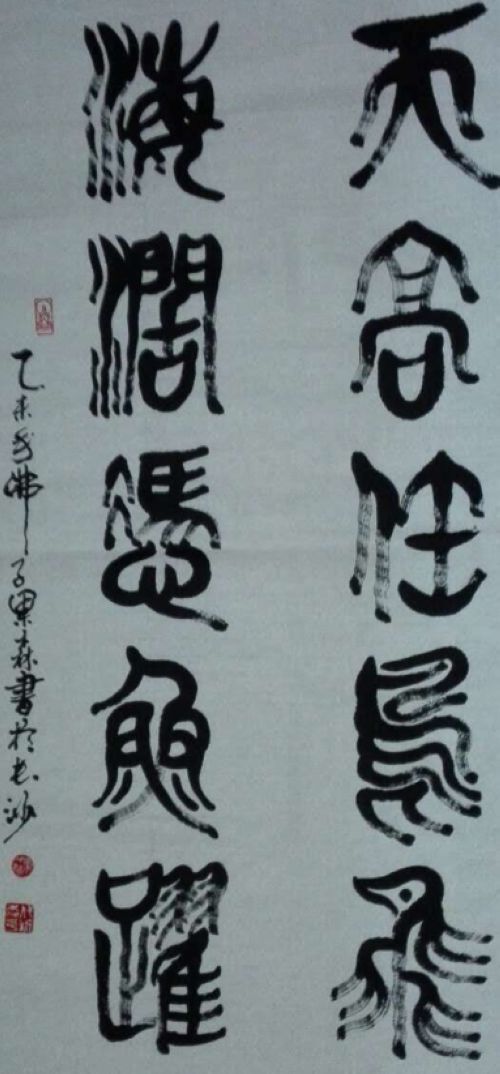 天高任鳥飛
海濶憑魚躍
乙未佛子果森書於长沙